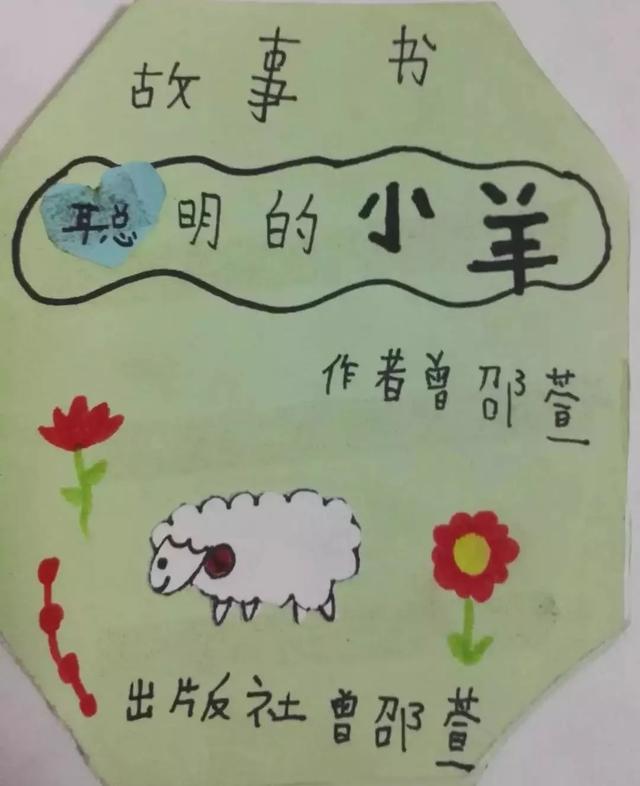 故事书
聪明的小羊
作者曾邵萱
出版社曾邵萱